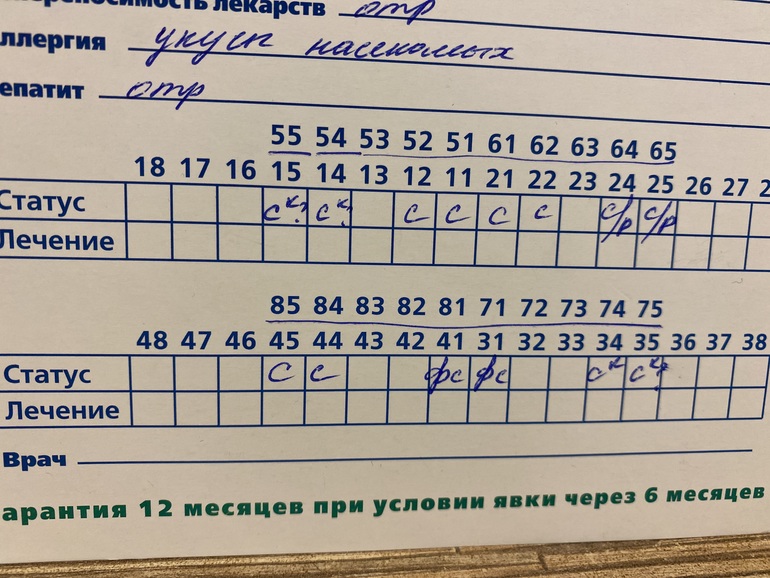 переносимость лекарств отр
ллергия укусы насекомых
епатит отр
55 54 53 52 51 61 62 63 64 65
18 17 16 15 14 13 12 11 21 22 23 24 25 26 27 2
Статус с к? с к? с с с с с/р с/р
Лечение
85 84 83 82 81 71 72 73 74 75
48 47 46 45 44 43 42 41 31 32 33 34 35 36 37 38
Статус с с фс фс с к с к?
Лечение
Врач
арантия 12 месяцев при условии явки через 6 месяцев